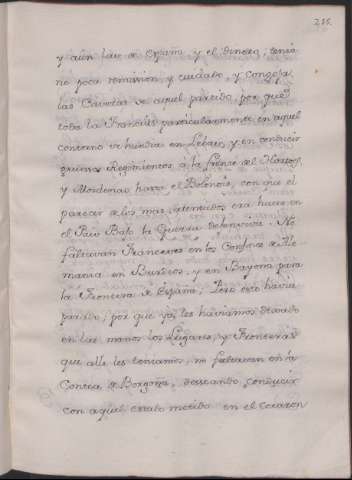 215.
y aún las de España y el dinero, tenia
no poca remision, y cuidado, y congoja
las Cavezas de aquel partido, por que
toda la Francia particularmente en aquel
contorno se hundia en Lebas, y en conducir
gruesos Regimientos a la frente de Haxton,
y Mordenau hazia el Boloñés, con que el
parecer de los mas atentados era hacer en
el Pais Bajo la Guerra defensiva. No
faltavan Franceses en los Confines de Ale
mania en Buxeos, y en Bayona para
la Frontera de España, Pero esto havia
parado, por que ya les haviamos dexado
en las manos los Lugares, y Fronteras
que alli les teniamos, no faltavan en la
Contea de Borgoña, deseando conducir
con aquel Estado metido en el corazon